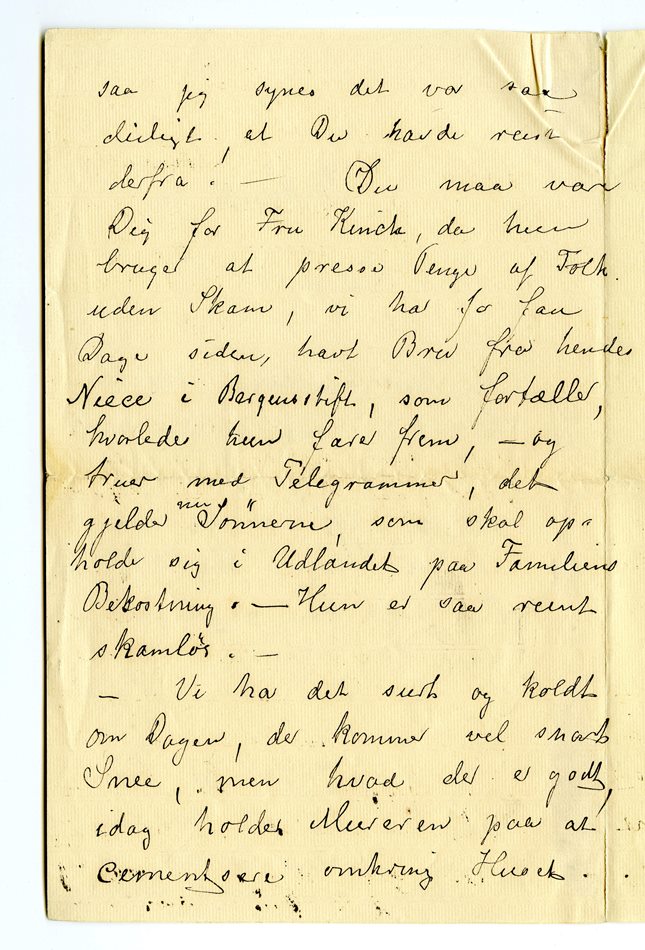 saa jeg synes det var saa
deiligt, at Du havde reist
derfra! — Du maa vare
Dig for Fru Kinck, da hun
bruger at presse Penge af Folk
uden Skam, vi ha for faa
Dage siden, havt Brev fra hendes
Niéce i Bergensstift, som fortæller,
hvorledes hun farer frem, — og
truer med Telegrammer, det
gjelder nu Sønnerne, som skal op-
holde sig i Udlandet paa Familiens
Bekostning. — Hun er saa reent
skamløs. —
— Vi ha det surt og koldt
om Dagen, der kommer vel snart
Snee, men hvad der er godt,
idag holder Mureren paa at
cementsere omkring Huset.